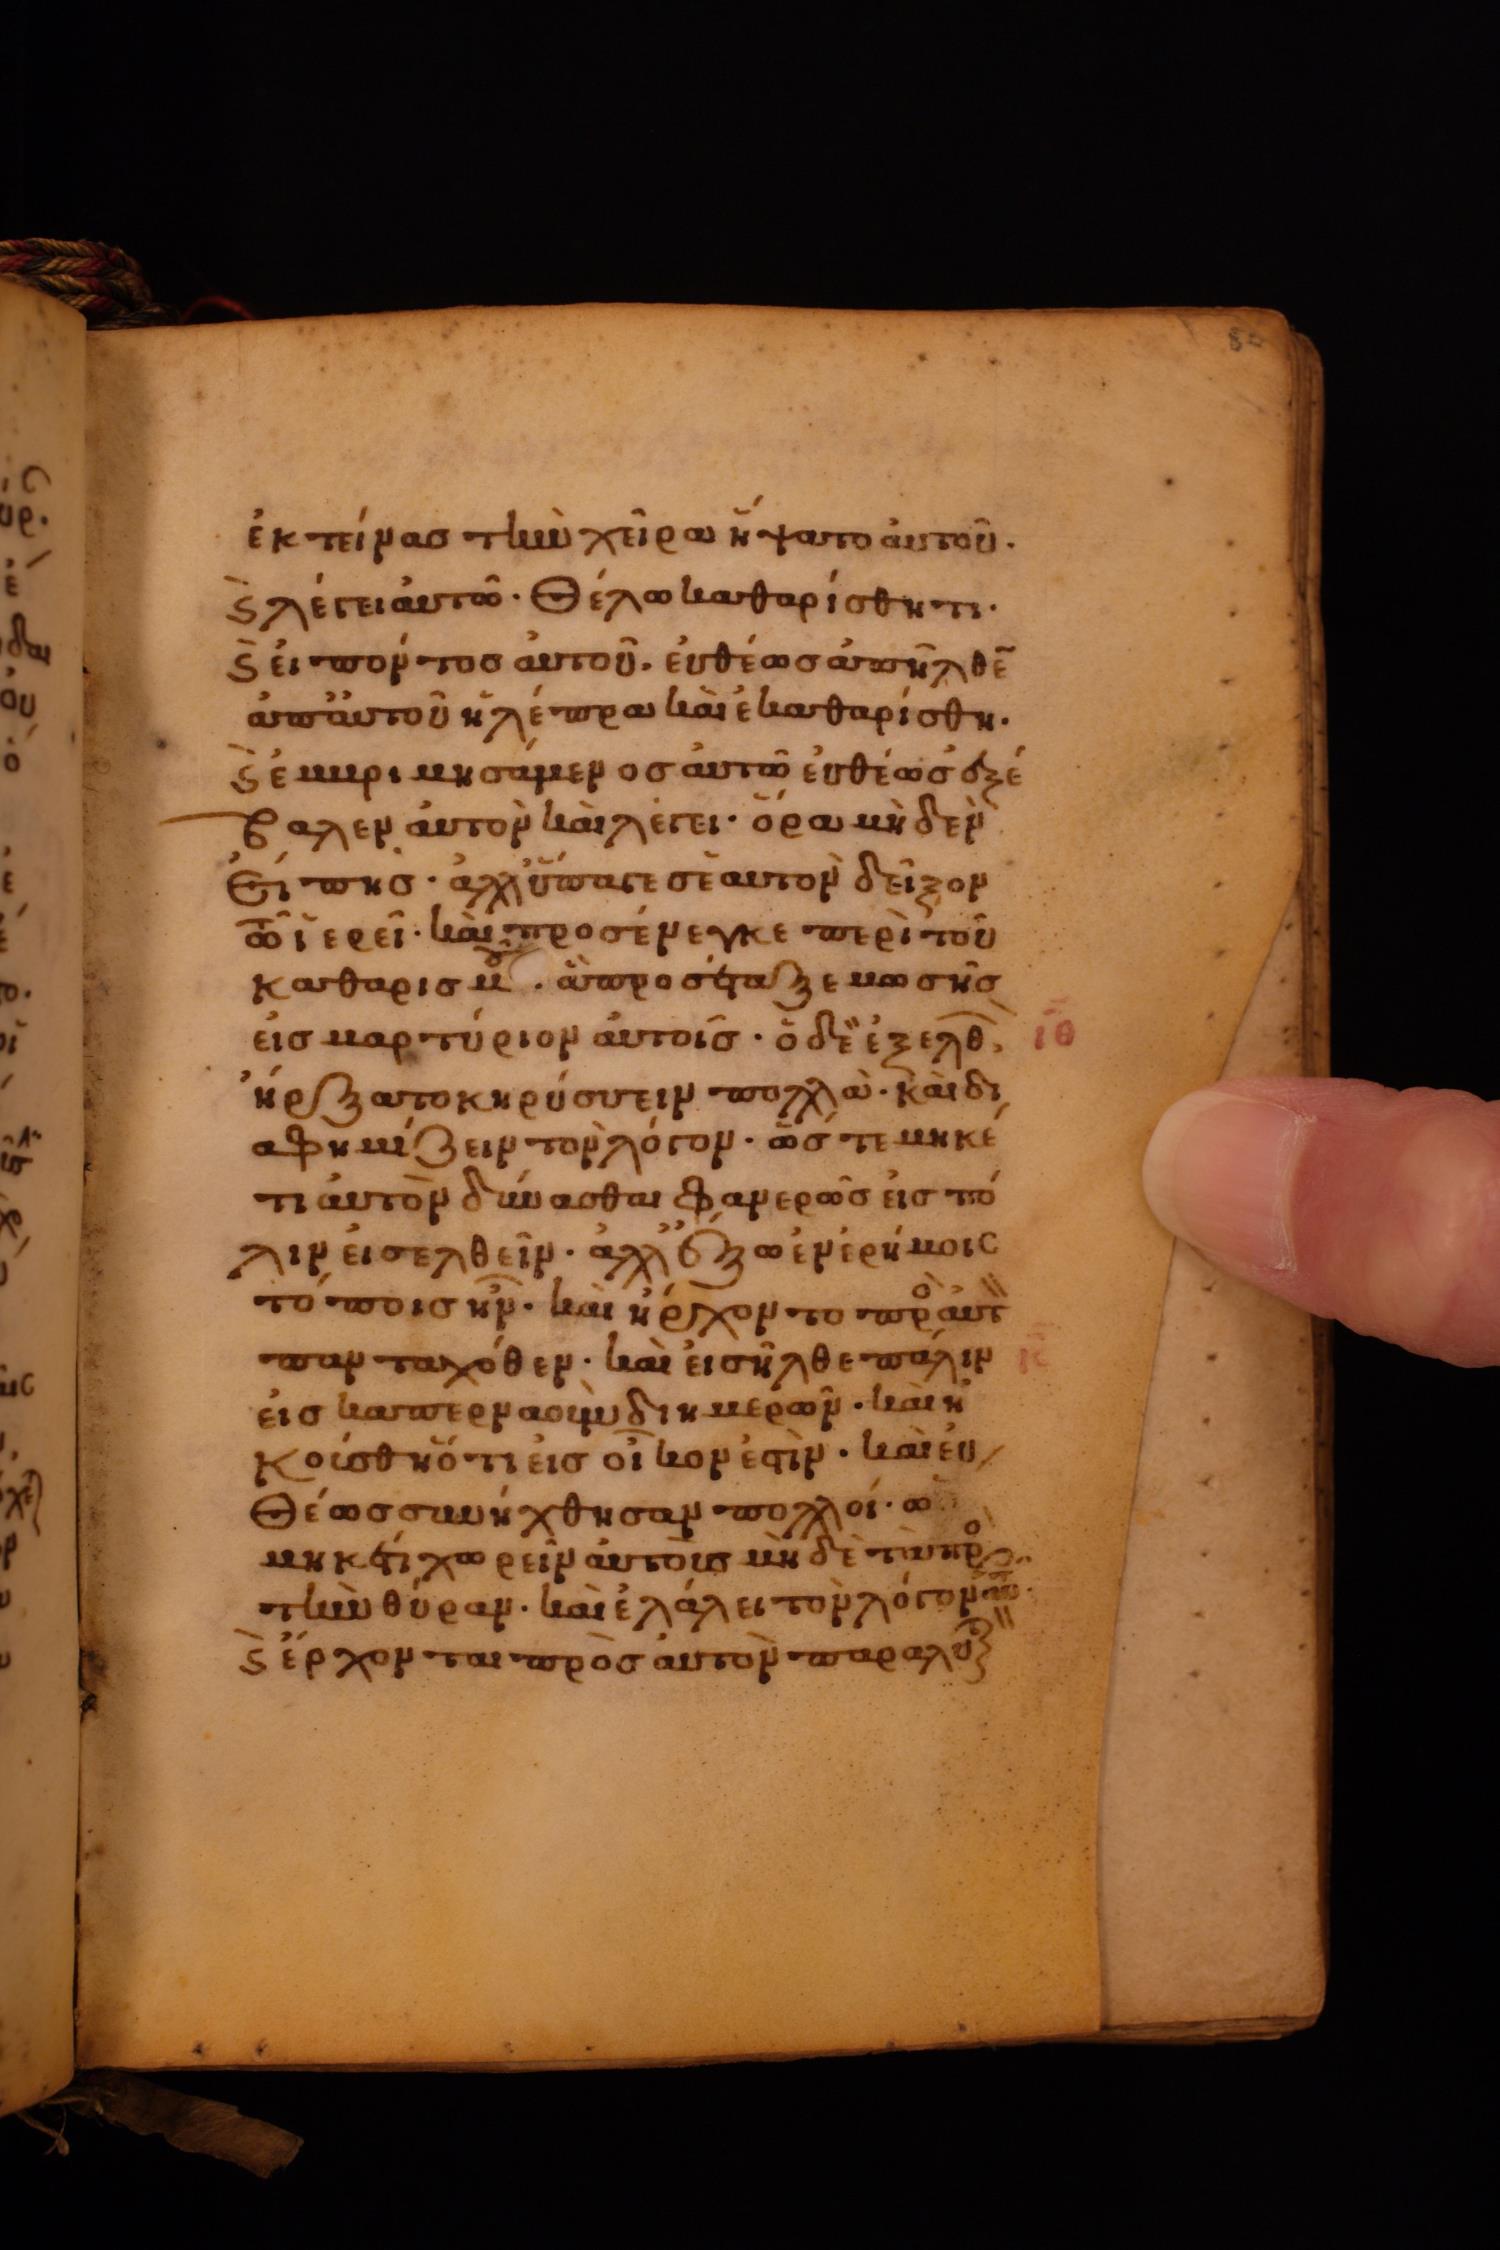 ἐκτείνας τὴν χεῖρα ἥψατο ἀυτοῦ.
Ϛ̀ λέγει ἀυτῶ· Θέλω καθαρίσθητι·
Ϛ̀ ἐιπόντος ἀυτοῦ. ἐυθέως ἀπῆλθε̄
ἀπ' ἀυτοῦ ἡ λέπρα καὶ ἐκαθαρίσθη.
Ϛ̀ ἐμβριμησάμενος ἀυτῶ ἐυθέως ἐξέ
βαλεν ἀυτὸν καὶ λέγει· ὅρα μὴδὲν
Ἐίπης· ἀλλ' ὕπαγε σὲαυτὸν δεῖξον
τῶ ϊερεῖ· καὶ προσένεγκε περὶ τοῦ
καθαρισμοῦ. ἃ προσέταξε μωσῆς
εἰς μαρτύριον ἀυτοῖς· ὁ δὲ ἐξελθ
ἤρξατο κηρύσσειν πολλὰ· καὶ δι
αφημίζειν τὸν λόγον· ὥστε μηκέ
τι ἀυτὸν δύνασθαι φανερῶς ἐις πό
λιν ἐισελθεῖν· ἀλλ' ἔξω ἐν ἐρήμοις
τόποις ἦν· καὶ ἤρχοντο πρ ἀυτ
πανταχόθεν· καὶ ἐισῆλθε πάλιν
ἐις καπερναοὺμ δι ημερῶν· καὶ ἠ
κοίσθη ὅτι ἐις οἶκον ἐστὶν· καὶ ἐυ
Θέως συνήχθησαν πολλοί· ὡ
μηκέτι χωρεῖν ἀυτοὺς μὴδὲ τὰ πρ
τὴν θύραν. καὶ ἐλάλει τὸν λόγον
Ϛ̀ ἔρχονται πρὸς ἀυτὸν παραλυ
ιθ
κ